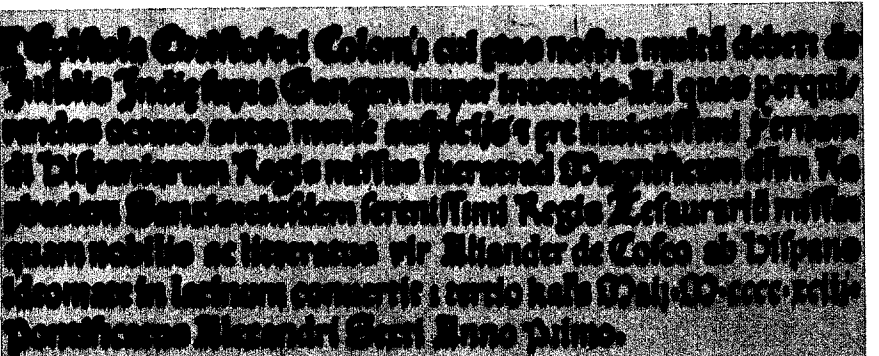 Epistola Christofori Colom: cui etas nostra multū debet: de
Insulis Indie supra Gangem nuper inuentis. Ad quas perqui⸗
rendas octauo antea mense auspicijs ⁊ ere inuictissimi Fernan
di Hispaniarum Regis missus fuerat: ad Magnificum dñm Ra
eiusdem serenissimi Regis Tesaurariū missa:
quam nobilis ac litteratus vir Aliander de Cosco ab Hispano
ideomate in latinum conuertit: tertio kalẽs Maij. M.cccc.xciij.
Pontificatus Alexandri Sexti Anno Primo.